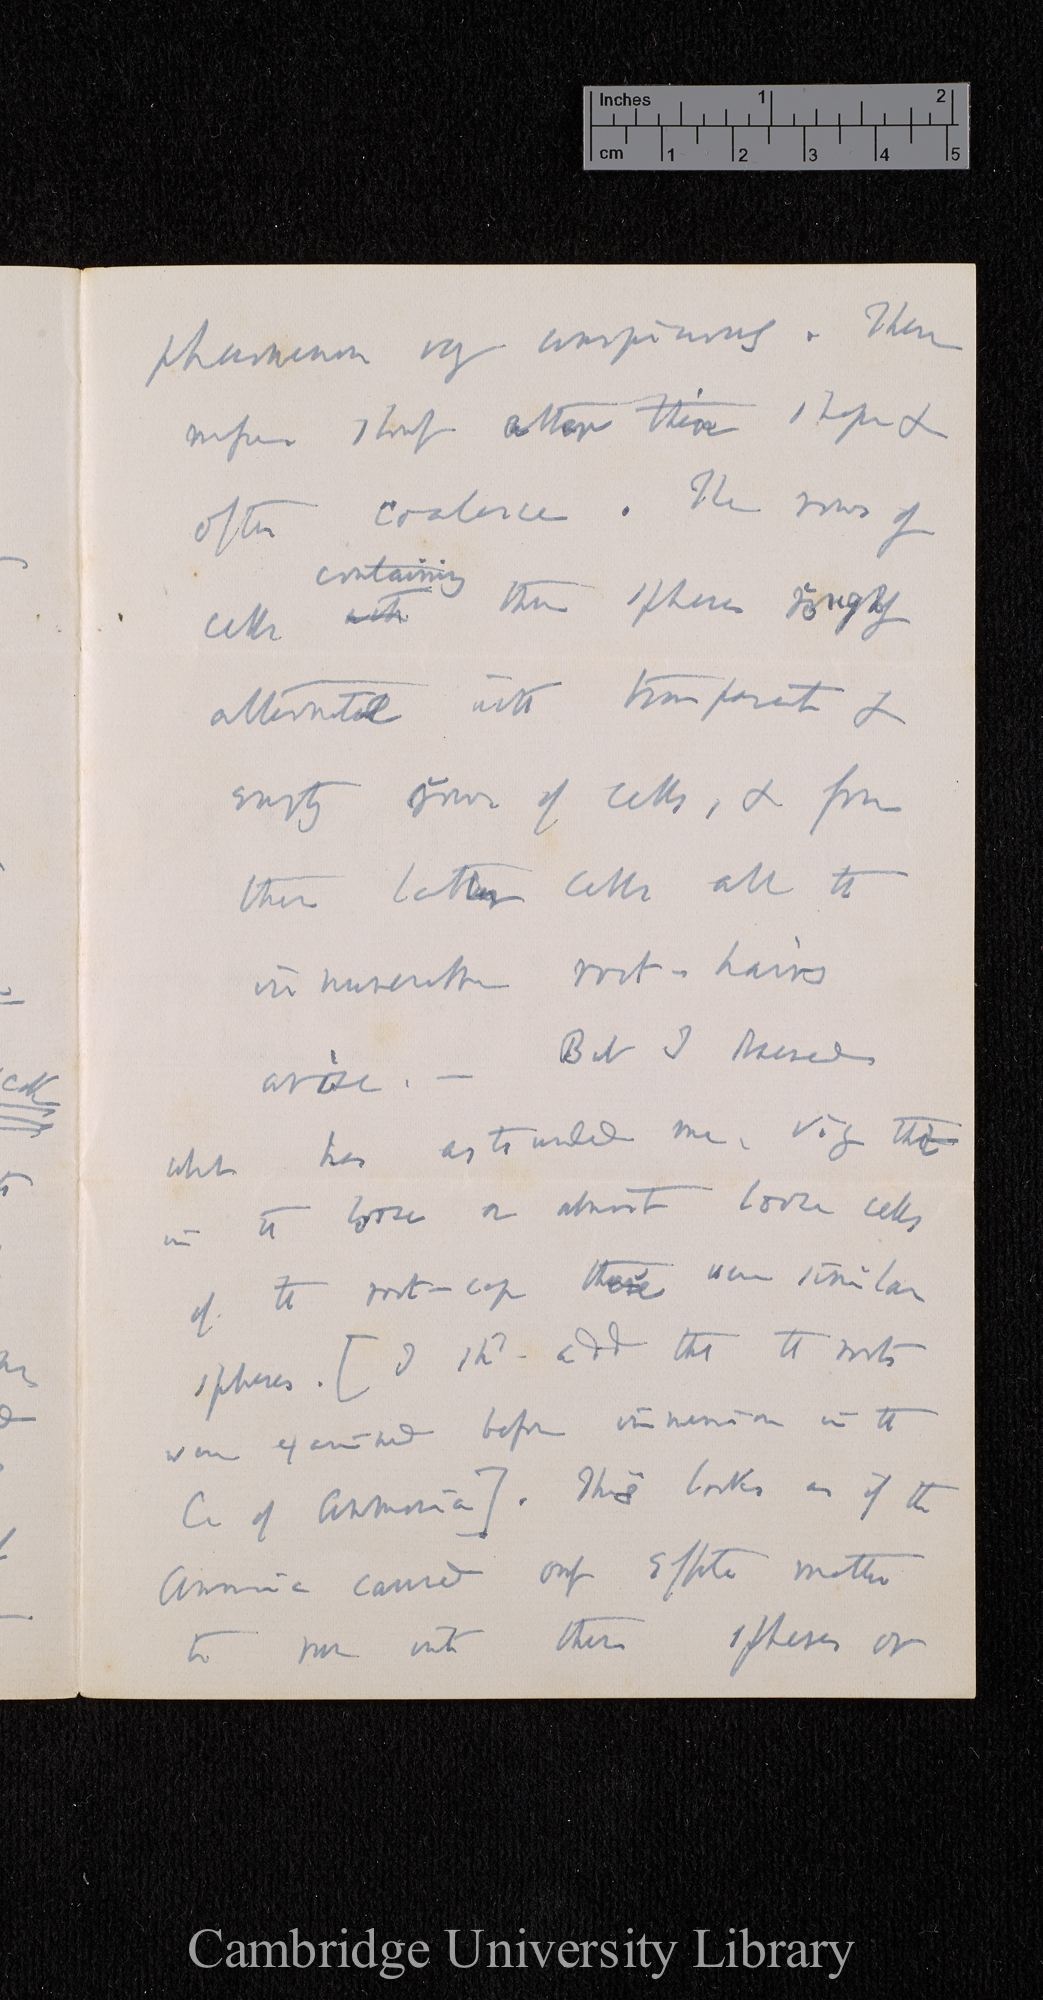 Inches 1 2
cm 1 2 3 4 5
phenomenon very conspicuous. These
spheres slowly alter their shape &
often coalesce. The rows of
containing
cells with these spheres roughly
alternate with transparent &
empty rows of cells, & from
these latter cells all the
innumerable root-hairs
arise. — But I observed
what has astounded me, viz that
in the loose or almost loose cells
of the root-cap there were similar
spheres. [I shd. add that the roots
were examined before immersion in the
C. of Ammonia]. This looks as if the
Ammonia caused only effete matter
to run into these spheres or
Cambridge University Library